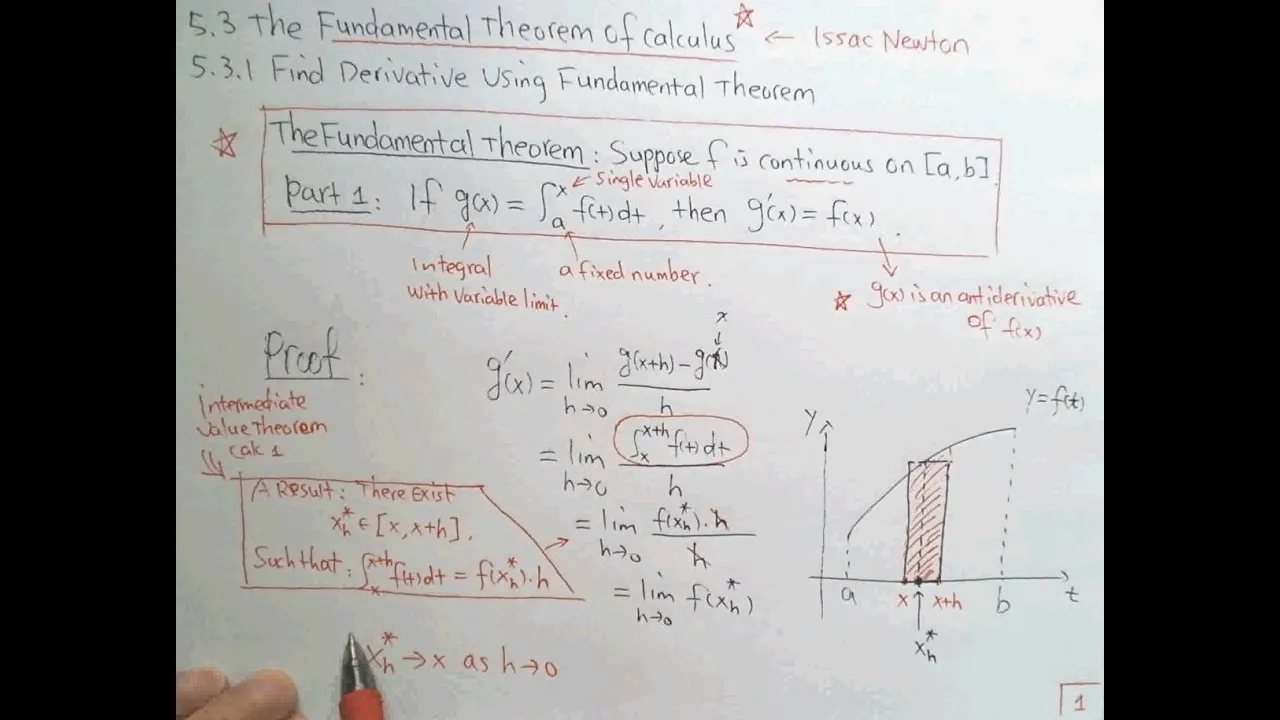 5.3 The Fundamental Theorem of calculus ☆ ← Issac Newton
5.3.1 Find Derivative Using Fundamental Theorem
☆ The Fundamental Theorem: Suppose f is continuous on [a,b].
← Single variable
Part 1: If g(x) = ∫ₐˣ f(t)dt, then g'(x) = f(x).
Integral
with variable limit.
a fixed number.
☆ g(x) is an antiderivative
of f(x)
Proof:
x
↓
g'(x) = lim h→0 g(x+h) - g(x) / h
= lim h→0 ∫ₓˣ⁺ʰ f(t)dt / h
= lim h→0 f(xₕ*)·h / h
= lim h→0 f(xₕ*)
intermediate
value Theorem
calc 1
A Result: There exist
xₕ* ∈ [x, x+h],
Such that: ∫ₓˣ⁺ʰ f(t)dt = f(xₕ*)·h
xₕ* → x as h→0
y = f(t)
y
a x x+h b t
xₕ*
1